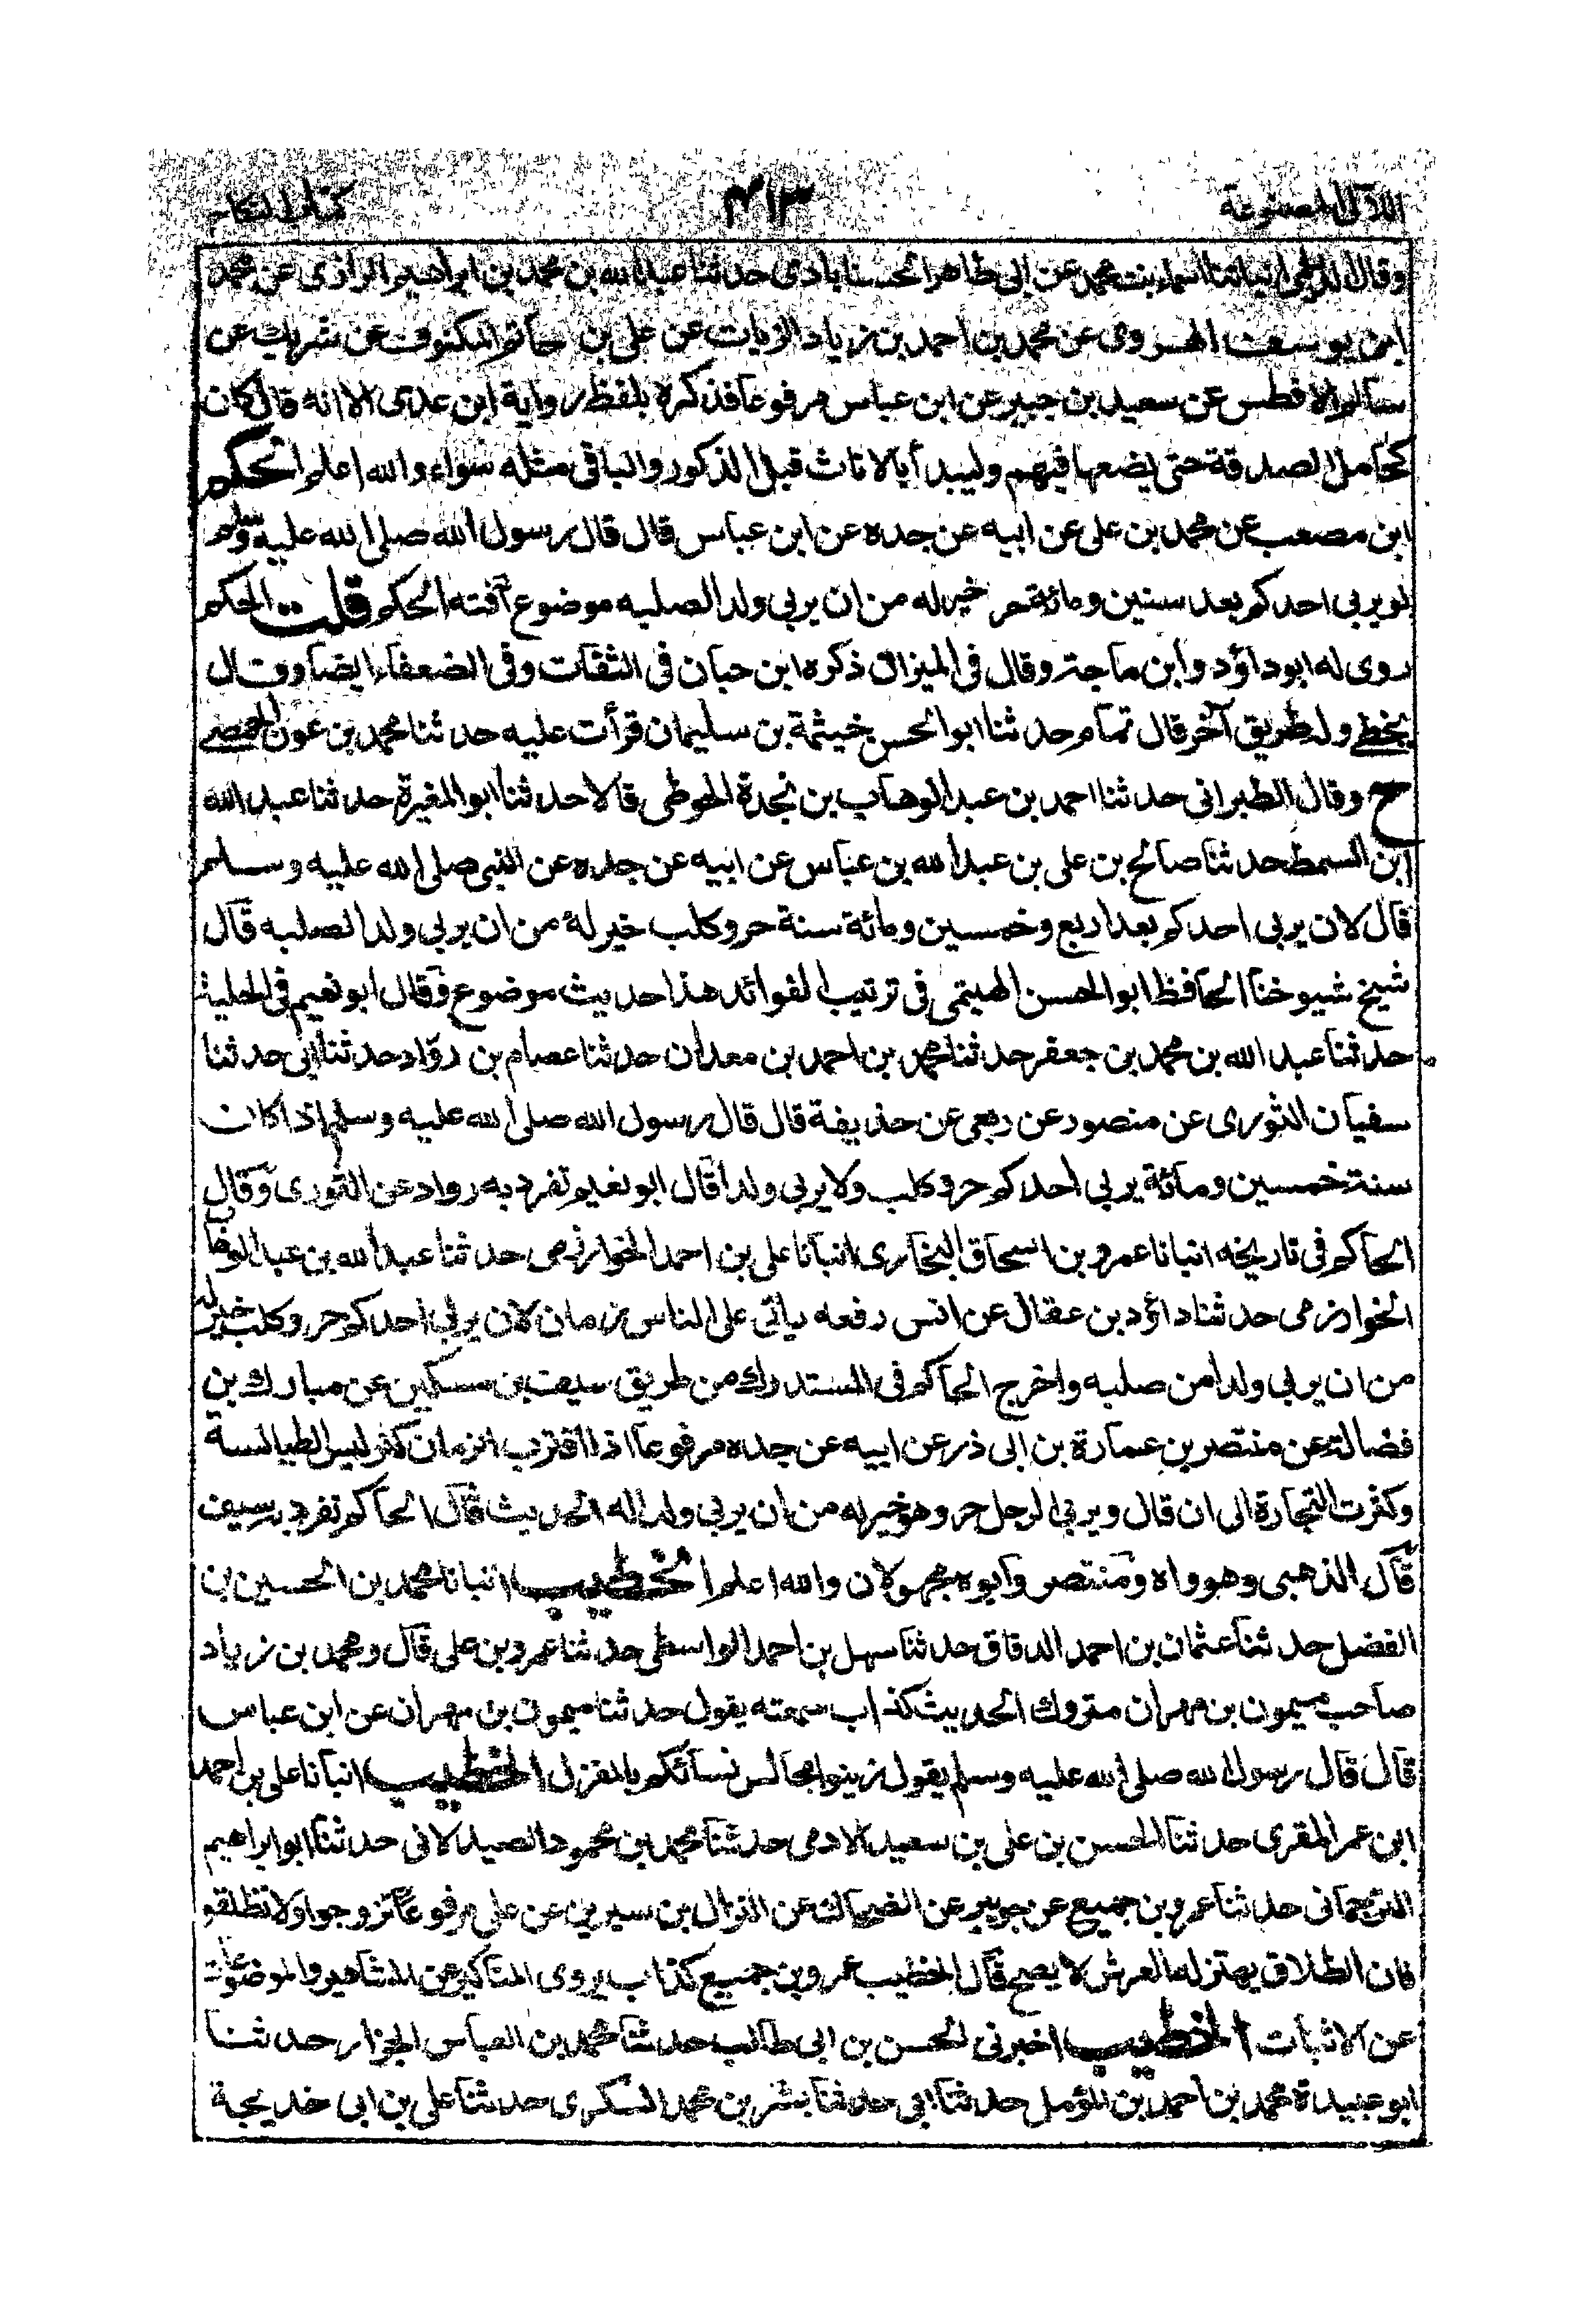 اللآلئ المصنوعة
۴۱۳
كتاب النكاح
وقال الديلمى انبأتنا اسماء بنت محمد عن ابى طاهر الحسنابادى حدثنا عبد الله بن محمد بن ابراهيم الرازى عن محمد
ابن يوسف الهروى عن محمد بن احمد بن زياد الزيات عن على بن حاتم المكفوف عن شريك عن
سالم الافطس عن سعيد بن جبير عن ابن عباس مرفوعا فذكره بلفظ رواية ابن عدى الا انه قال كان
كحامل الصدقة حتى يضعها فيهم وليبدأ بالاناث قبل الذكور والباقى مثله سواء والله اعلم الحكم
ابن مصعب عن محمد بن على عن ابيه عن جده عن ابن عباس قال قال رسول الله صلى الله عليه وسلم
لو يربى احدكم بعد ستين ومائة جرو خير له من ان يربى ولد الصلبه موضوع آفته الحكم قلت الحكم
روى له ابو داؤد وابن ماجة وقال فى الميزان ذكره ابن حبان فى الثقات وفى الضعفاء ايضا وقال
يخطئ وله طريق آخر قال تمام حدثنا ابو الحسن خيثمة بن سليمان قرأت عليه حدثنا محمد بن عون الحمصى
ح وقال الطبرانى حدثنا احمد بن عبد الوهاب بن نجدة الحوطى قالا حدثنا ابو المغيرة حدثنا عبد الله
ابن السمط حدثنا صالح بن على بن عبد الله بن عباس عن ابيه عن جده عن النبى صلى الله عليه وسلم
قال لان يربى احدكم بعد اربع وخمسين ومائة سنة جرو كلب خير له من ان يربى ولدا لصلبه قال
شيخ شيوخنا الحافظ ابو الحسن الهيتمى فى ترتيب الفوائد هذا حديث موضوع وقال ابو نعيم فى الحلية
حدثنا عبد الله بن محمد بن جعفر حدثنا محمد بن احمد بن معدان حدثنا عصام بن روّاد حدثنا ابى حدثنا
سفيان الثورى عن منصور عن ربعى عن حذيفة قال قال رسول الله صلى الله عليه وسلم اذا كان
سنة خمسين ومائة يربى احدكم جرو كلب ولا يربى ولدا قال ابو نعيم تفرد به رواد عن الثورى وقال
الحاكم فى تاريخه انبانا عمرو بن اسحاق البخارى انبانا على بن احمد الخوارزمى حدثنا عبد الله بن عبد الوهاب
الخوارزمى حدثنا داؤد بن عقال عن انس رفعه يأتى على الناس زمان لان يربى احدكم جرو كلب خير له
من ان يربى ولدا من صلبه واخرج الحاكم فى المستدرك من طريق سيف بن مسكين عن مبارك بن
فضالة عن منتصر بن عمارة بن ابى ذر عن ابيه عن جده مرفوعا اذا اقترب الزمان كثر لبس الطيالسة
وكثرت التجارة الى ان قال ويربى الرجل جروه خير له من ان يربى ولدا له الحديث قال الحاكم تفرد به سيف
قال الذهبى وهو واه ومنتصر وابوه مجهولان والله اعلم الخطيب انبانا محمد بن الحسين بن
الفضل حدثنا عثمان بن احمد الدقاق حدثنا سهل بن احمد الواسطى حدثنا عمرو بن على قال ومحمد بن زياد
صاحب ميمون بن مهران متروك الحديث كذاب سمعته يقول حدثنا ميمون بن مهران عن ابن عباس
قال قال رسول الله صلى الله عليه وسلم يقول زينوا مجالس نسائكم بالمغزل الخطيب انبانا على بن احمد
ابن عمر المقرى حدثنا الحسن بن على بن سعيد الادمى حدثنا محمد بن محمود الصيدلانى حدثنا ابو ابراهيم
الترجمانى حدثنا عمرو بن جميع عن جويبر عن الضحاك عن النزال بن سيرين عن على مرفوعا تزوجوا ولا تطلقو
فان الطلاق يهتز له العرش لا يصح قال الخطيب عمرو بن جميع كذاب يروى المناكير عن المشاهير والموضوعات
عن الاثبات الخطيب اخبرنى الحسن بن ابى طالب حدثنا محمد بن العباس الخزاز حدثنا
ابو عبيدة محمد بن احمد بن المؤمل حدثنا ابى حدثنا بشر بن محمد السكرى حدثنا على بن ابى خديجة